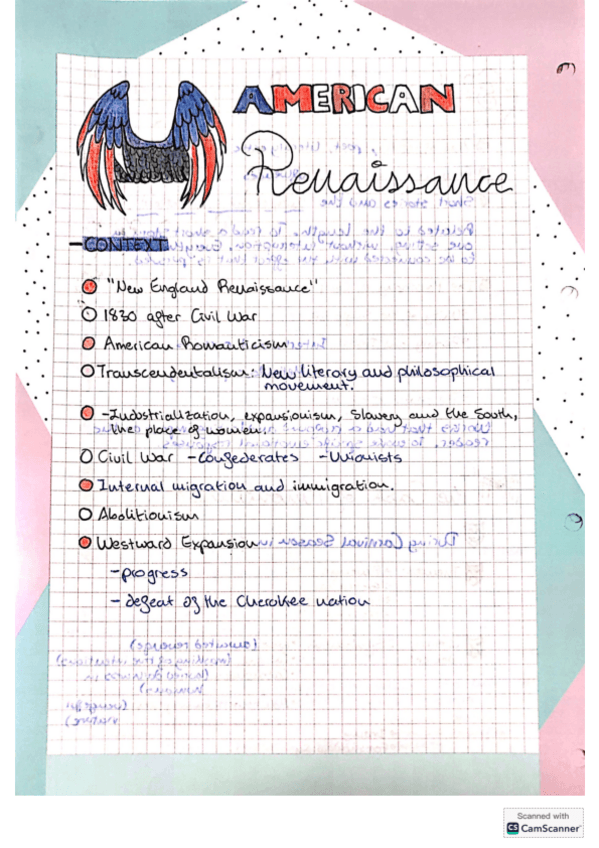 AMERICAN
Renaissance
-CONTEXT
"New England Renaissance"
1830 after Civil War
American Romanticism
Transcendentalism: New literary and philosophical
movement.
-Industrialization, expansionism, Slavery and the South,
the place of women.
Civil War -Confederates -Unionists
Internal migration and immigration.
Abolitionism
Westward Expansion
-progress
- defeat of the Cherokee nation
Scanned with
CS CamScanner